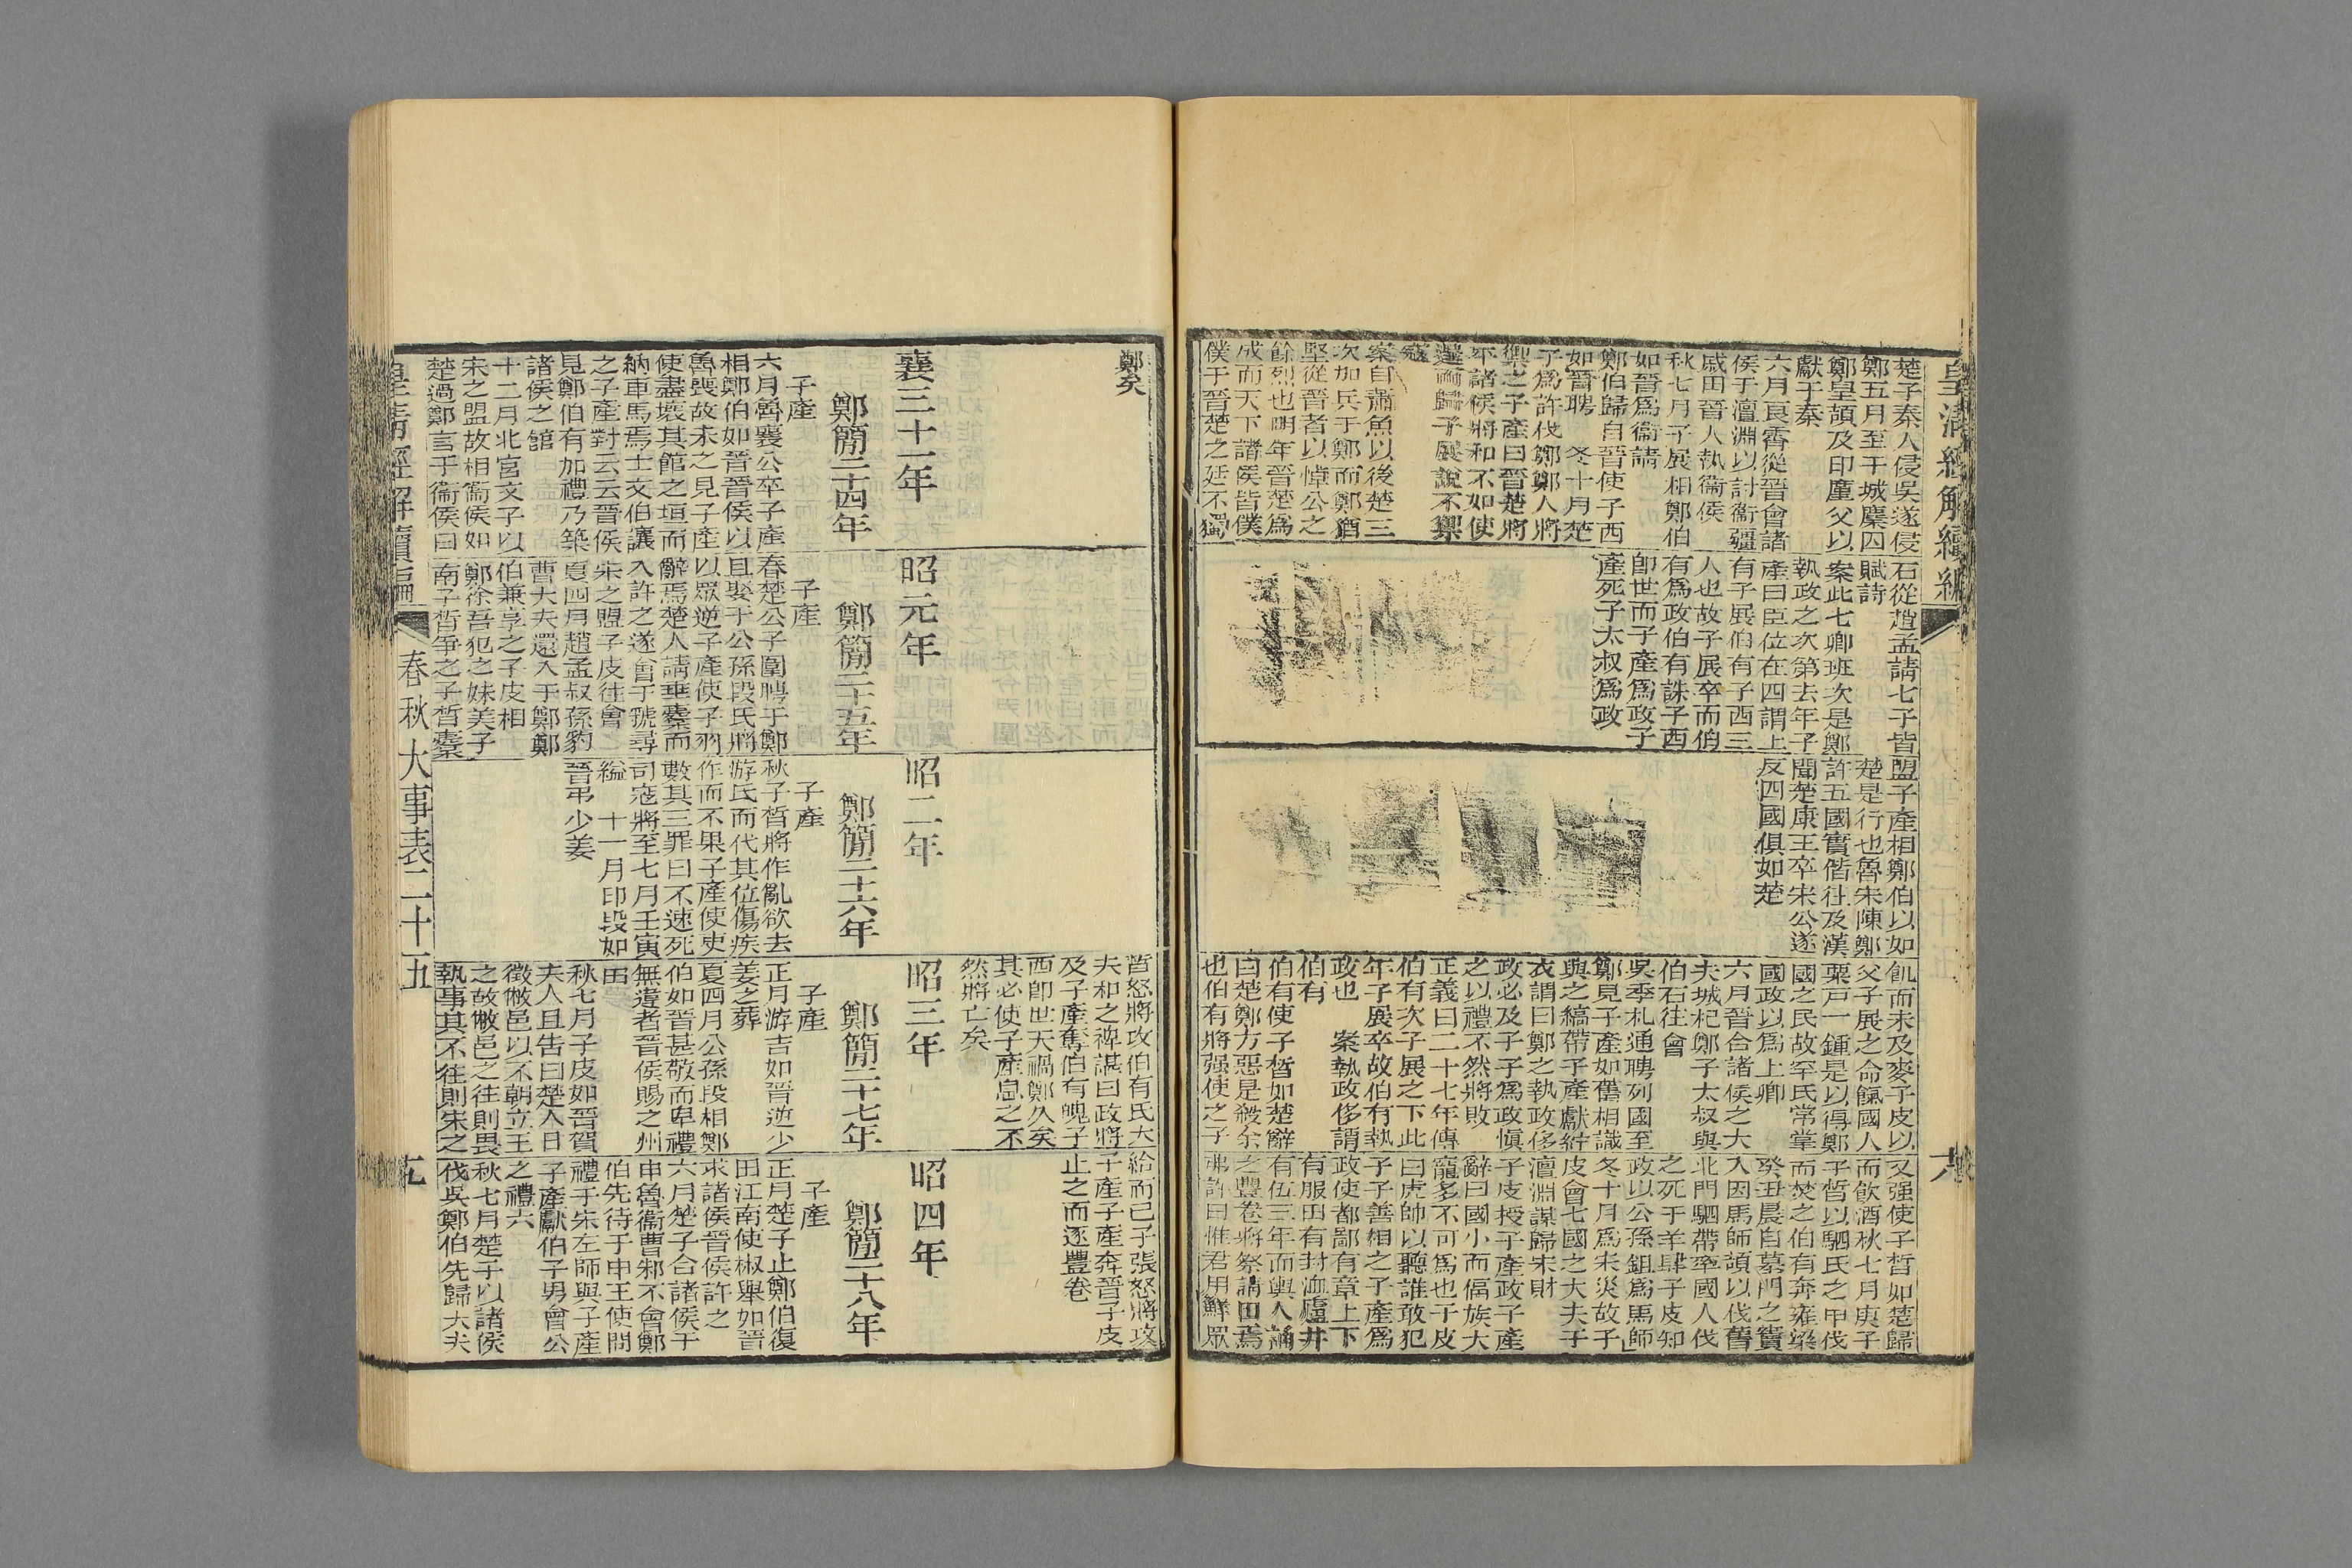 皇清經解續編
楚子秦人侵吳遂侵
鄭五月至于城麇囚
鄭皇頡及印堇父以
獻于秦
六月良霄從晉會諸
侯于澶淵以討衞疆
戚田晉人執衞侯
秋七月子展相鄭伯
如晉爲衞請
鄭伯歸自晉使子西
如晉聘　冬十月楚
子爲許伐鄭鄭人將
禦之子產曰晉楚將
平諸侯將和不如使
逞而歸子展說不禦
寇
案自蕭魚以後楚三
次加兵于鄭而鄭猶
堅從晉者以悼公之
餘烈也明年晉楚爲
成而天下諸侯皆僕
僕于晉楚之廷不獨
石從趙孟請七子皆
賦詩
案此七卿班次是鄭
執政之次第去年子
產曰臣位在四謂上
有子展伯有子西三
人也故子展卒而伯
有爲政伯有誅子西
卽世而子產爲政子
產死子太叔爲政
盟子產相鄭伯以如
楚是行也魯宋陳鄭
許五國實偕往及漢
聞楚康王卒宋公遂
反四國俱如楚
飢而未及麥子皮以
父子展之命餼國人
粟戸一鍾是以得鄭
國之民故罕氏常掌
國政以爲上卿
六月晉合諸侯之大
夫城杞鄭子太叔與
伯石往會
吳季札通聘列國至
鄭見子產如舊相識
與之縞帶子產獻紵
衣謂曰鄭之執政侈
政必及子子爲政愼
之以禮不然將敗
正義曰二十七年傳
伯有次子展之下此
年子展卒故伯有執
政也　案執政侈謂
伯有
伯有使子晳如楚辭
曰楚鄭方惡是殺余
也伯有將强使之子
又强使子晳如楚歸
而飲酒秋七月庚子
子晳以駟氏之甲伐
而焚之伯有奔雍梁
癸丑晨自墓門之竇
入因馬師頡以伐舊
北門駟帶率國人伐
之死于羊肆子皮知
政以公孫鉏爲馬師
冬十月爲宋災故子
皮會七國之大夫于
澶淵謀歸宋財
子皮授子產政子產
辭曰國小而偪族大
寵多不可爲也子皮
曰虎帥以聽誰敢犯
子子善相之子產爲
政使都鄙有章上下
有服田有封洫廬井
有伍三年而輿人誦
之豐卷將祭請田焉
弗許曰惟君用鮮眾
鄭矣
晳怒將攻伯有氏大
夫和之裨諶曰政將
及子產奪伯有魄子
西卽世天禍鄭久矣
其必使子產息之不
然將亡矣
給而已子張怒將攻
子產子產奔晉子皮
止之而逐豐卷
襄三十一年
鄭簡二十四年
子產
六月魯襄公卒子產
相鄭伯如晉晉侯以
魯喪故未之見子產
使盡壞其館之垣而
納車馬焉士文伯讓
之子產對云云晉侯
見鄭伯有加禮乃築
諸侯之館
十二月北宮文子以
宋之盟故相衞侯如
楚過鄭言于衞侯曰
昭元年
鄭簡二十五年
子產
春楚公子圍聘于鄭
且娶于公孫段氏將
以眾逆子產使子羽
辭焉楚人請垂櫜而
入許之遂會于虢尋
宋之盟子皮往會
夏四月趙孟叔孫豹
曹大夫還入于鄭鄭
伯兼享之子皮相
鄭徐吾犯之妹美子
南子晳爭之子晳櫜
昭二年
鄭簡二十六年
子產
秋子晳將作亂欲去
游氏而代其位傷疾
作而不果子產使吏
數其三罪曰不速死
司寇將至七月壬寅
縊　十一月印段如
晉弔少姜
昭三年
鄭簡二十七年
子產
正月游吉如晉送少
姜之葬
夏四月公孫段相鄭
伯如晉甚敬而卑禮
無違者晉侯賜之州
田
秋七月子皮如晉賀
夫人且告曰楚人日
徵敝邑以不朝立王
之故敝邑之往則畏
執事其不往則宋之
昭四年
鄭簡二十八年
子產
正月楚子止鄭伯復
田江南使椒舉如晉
求諸侯晉侯許之
六月楚子合諸侯于
申魯衞曹邾不會鄭
伯先待于申王使問
禮于宋左師與子產
子產獻伯子男會公
之禮六
秋七月楚子以諸侯
伐吳鄭伯先歸大夫
皇清經解續編
春秋大事表二十五